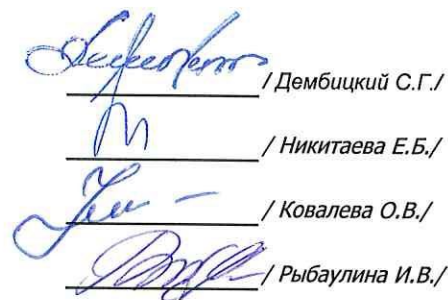 / Дембицкий С.Г./
/ Никитаева Е.Б./
/ Ковалева О.В./
/ Рыбаулина И.В./